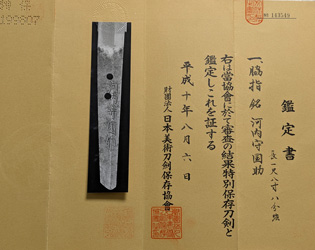 No 143549
鑑定書
一、脇指 銘 河内守国助
長一尺八寸八分強
右は當協會に於て審査の結果特別保存刀剣と
鑑定しこれを証する
平成十年八月六日
財團法人 日本美術刀劍保存協會
199807